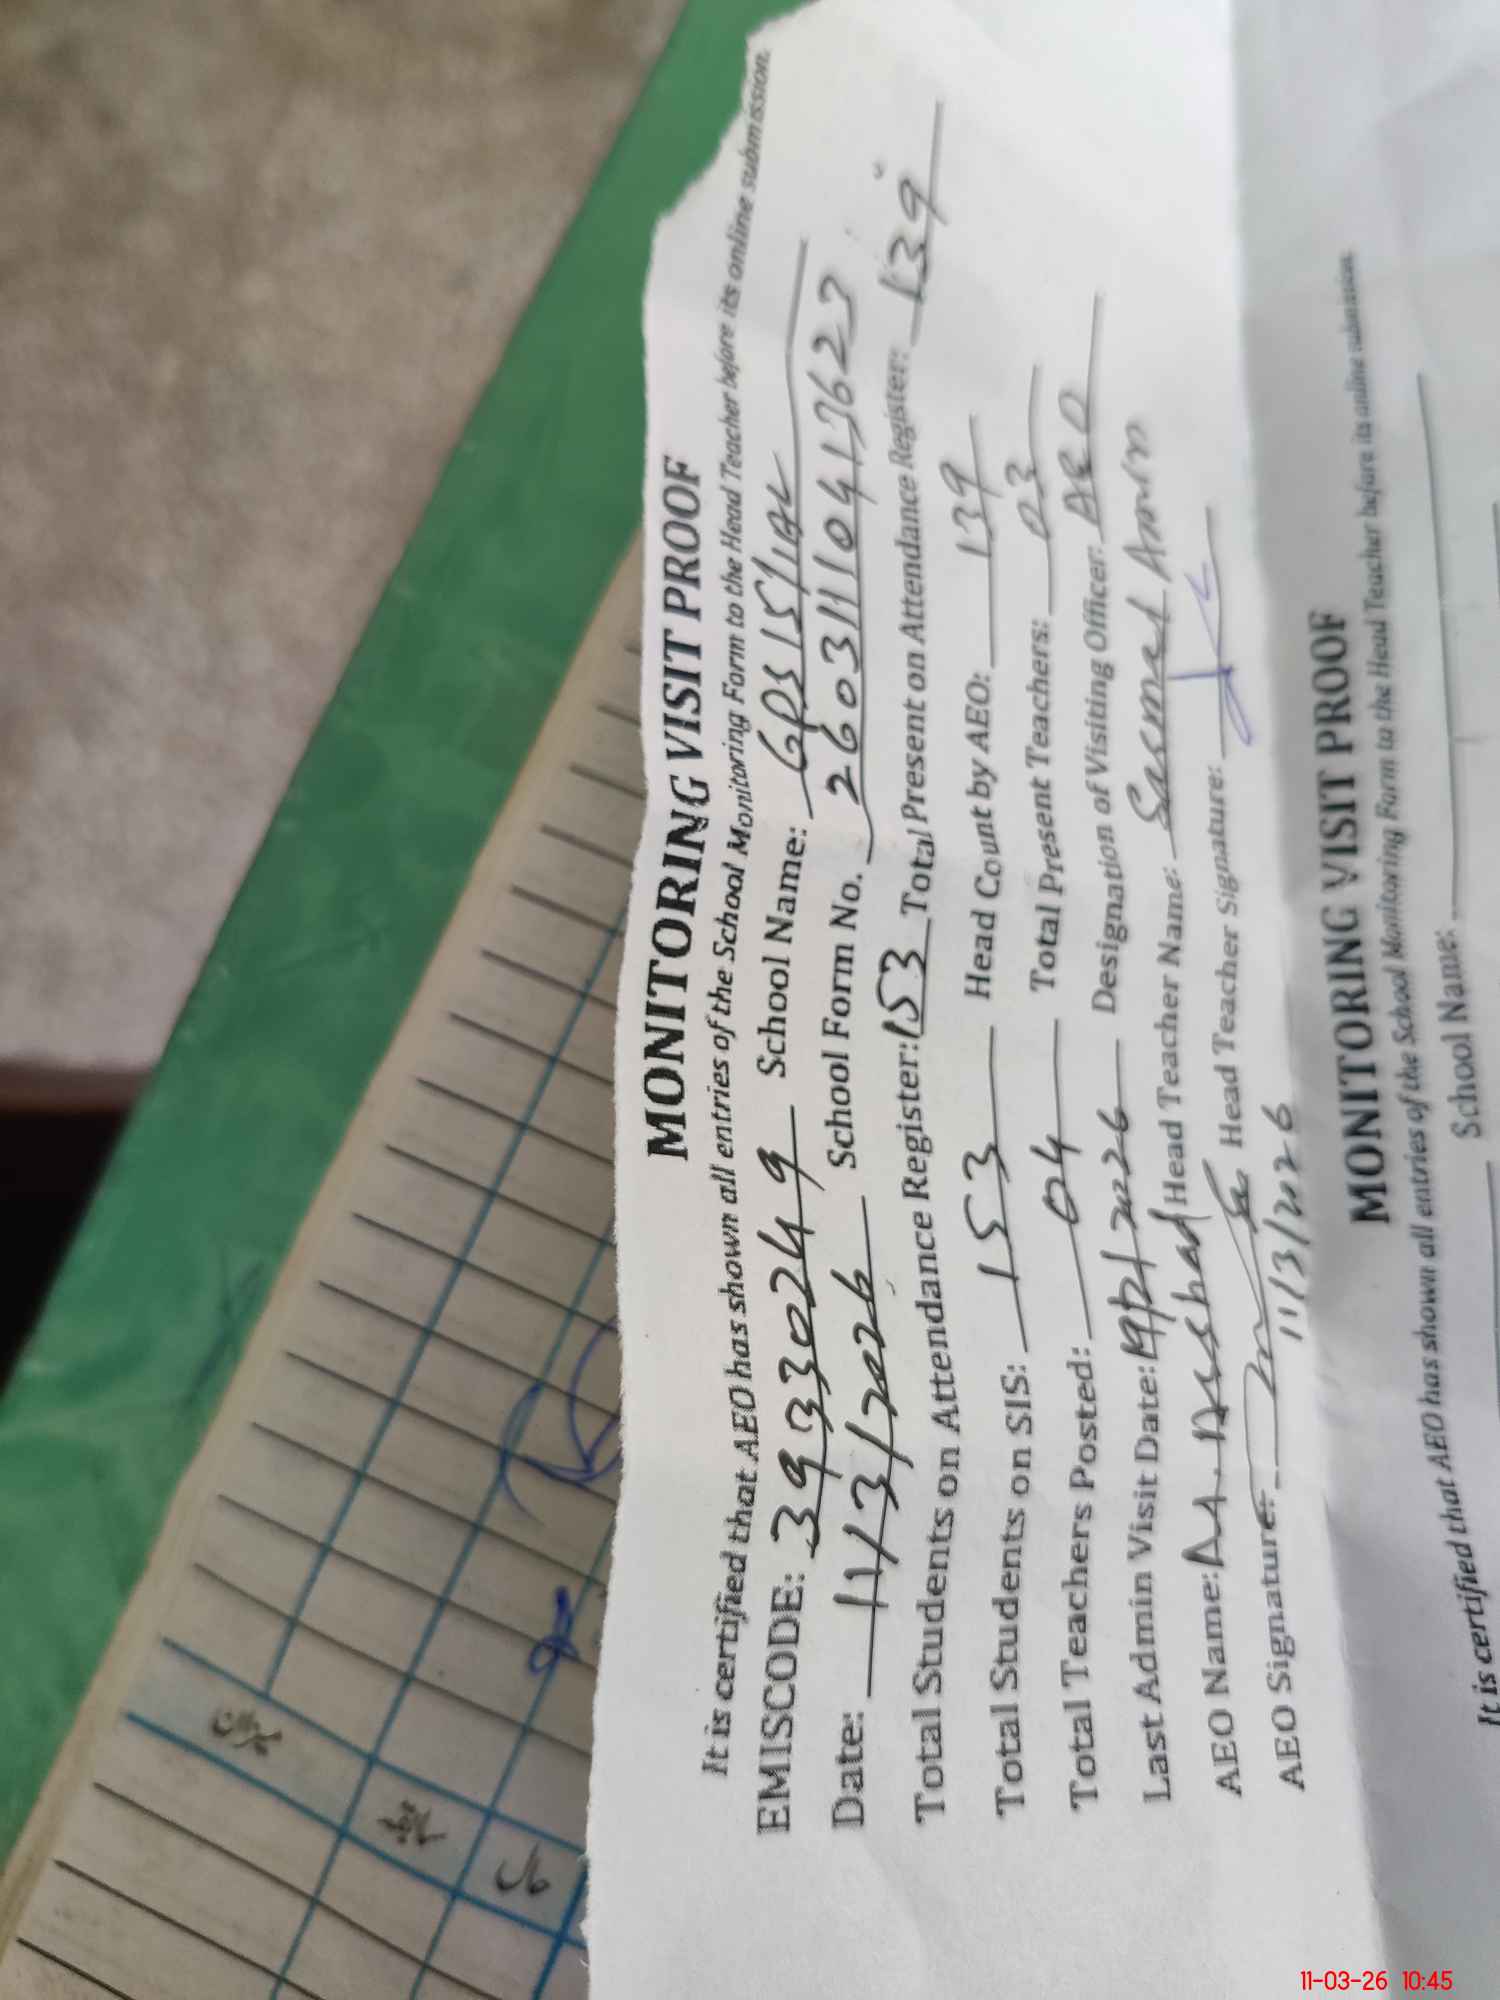 MONITORING VISIT PROOF
It is certified that AEO has shown all entries of the School Monitoring Form to the Head Teacher before its online submission.
EMISCODE: 39330249 School Name: GPS 15/1AL
Date: 11/3/2026 School Form No. 26031110413623
Total Students on Attendance Register: 153 Total Present on Attendance Register: 139
Total Students on SIS: 153 Head Count by AEO: 139
Total Teachers Posted: 04 Total Present Teachers: 03
Last Admin Visit Date: 19/2/2026 Designation of Visiting Officer: AEO
AEO Name: M. Arshad Head Teacher Name: Sarmad Amin
AEO Signature: Head Teacher Signature:
11/3/2026
MONITORING VISIT PROOF
It is certified that AEO has shown all entries of the School Monitoring Form to the Head Teacher before its online submission.
School Name:
میزان
سابقہ
حال
11-03-26 10:45